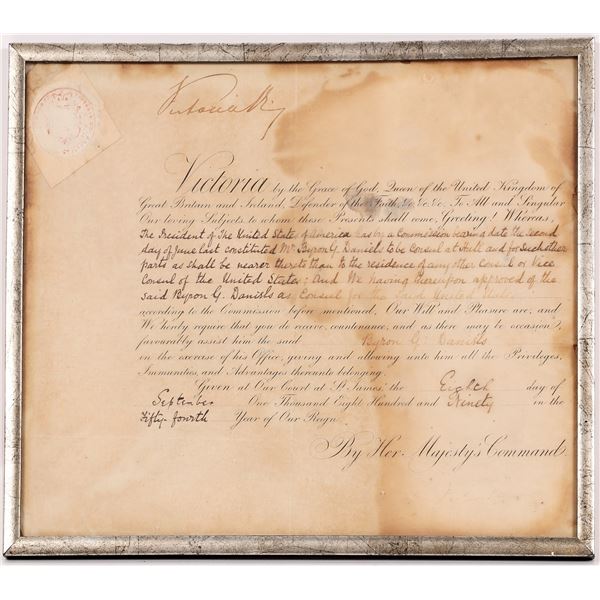 Victoria R
Victoria by the Grace of God, Queen of the United Kingdom of
Great Britain and Ireland, Defender of the Faith, &c. &c. &c. To All and Singular
Our loving Subjects, to whom these Presents shall come, Greeting! Whereas,
The President of The United States of America has by a Commission bearing date the second
day of June last constituted Mr Byron G. Daniels to be Consul at Hull and for such other
parts as shall be nearer thereto than to the residence of any other Consul or Vice
Consul of the United States; And We having thereupon approved of the
said Byron G. Daniels as Consul for the said United States
according to the Commission before mentioned, Our Will and Pleasure are, and
We hereby require that you do receive, countenance, and, as there may be occasion,
favourably assist him the said Byron G. Daniels
in the exercise of his Office, giving and allowing unto him all the Privileges,
Immunities, and Advantages thereunto belonging.
Given at Our Court at St James', the Eighth day of
September One Thousand Eight Hundred and Ninety in the
Fifty-fourth Year of Our Reign.
By Her Majesty's Command.